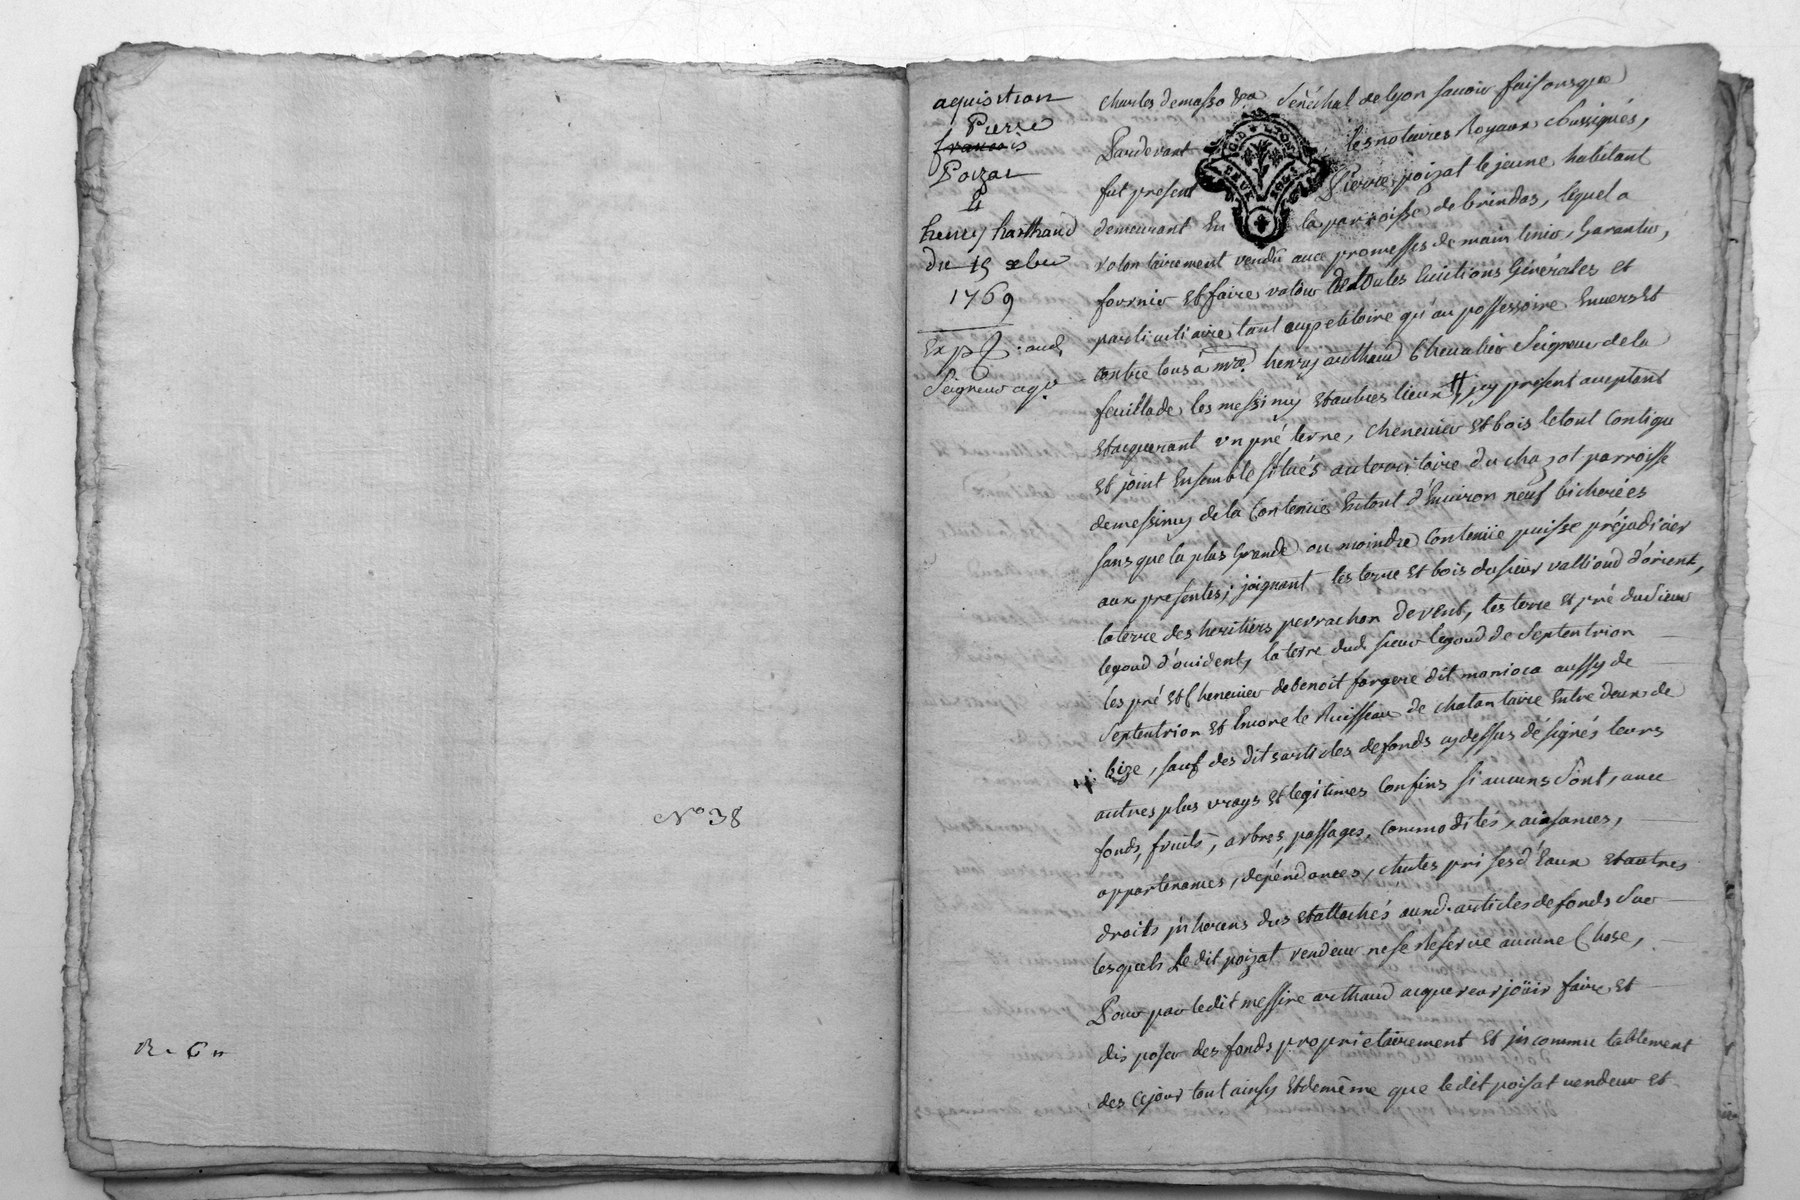 N° 38
R. 6 n
aquisition
Pierre
francois
Poizat
&
henry harthaud
du 15 xbre
1769
Exp. aud.
Seigneur aqr.
Charles demasso &a Sénéchal de lyon savoir faisons que
Pardevant les notaires Royaux soussignés,
fut present Pierre poizat le jeune habitant
demeurant En la parroisse de brindas, lequel a
volontairement vendu avec promesses de maintenir, Garantir,
fournir Et faire valoir de toutes Evictions Générales et
particuliaire tant au petitoire qu'au possessoire Envers Et
contre tous à mre. henry arthaud Chevalier Seigneur de la
feuillade, les messimy Et autres lieux # jcy présent aceptant
Et acquerant un pré terre, chenevier Et bois le tout Contigu
Et joint Ensemble situés au territoire du chazot parroisse
de messimy de la Contenüe Entout d'Environ neuf bicherées
sans que la plus Grande ou moindre Contenüe puisse préjudicier
aux presentes; joignant les terre Et bois du sieur vallioud d'orient,
la terre des heritiers perrachon de vent, les terre Et pré du Sieur
legoud d'occident, la terre dud. sieur legoud de Septentrion
les pré Et Chenevier de benoit forgere dit manioca aussy de
Septentrion Et Encore le Ruisseau de chatanlaire Entre deux de
bize, sauf des dits articles de fonds cy dessus désignés leurs
autres plus vrays Et legitimes Confins si aucuns Sont, avec
fonds, fruits, arbres, passages, Commodités, aisances,
appartenances, dépendances, chutes prises d'Eaux Et autres
droits jnherens dus Et attachés aux d. articles de fonds Sur
lesquels Ledit poizat vendeur ne se Reserve aucune Chose,
Pour par ledit messire arthaud acquereur joüir faire Et
disposer des fonds proprietairement Et jncommutablement
des Cejour tout ainsy Et de même que ledit poizat vendeur Et